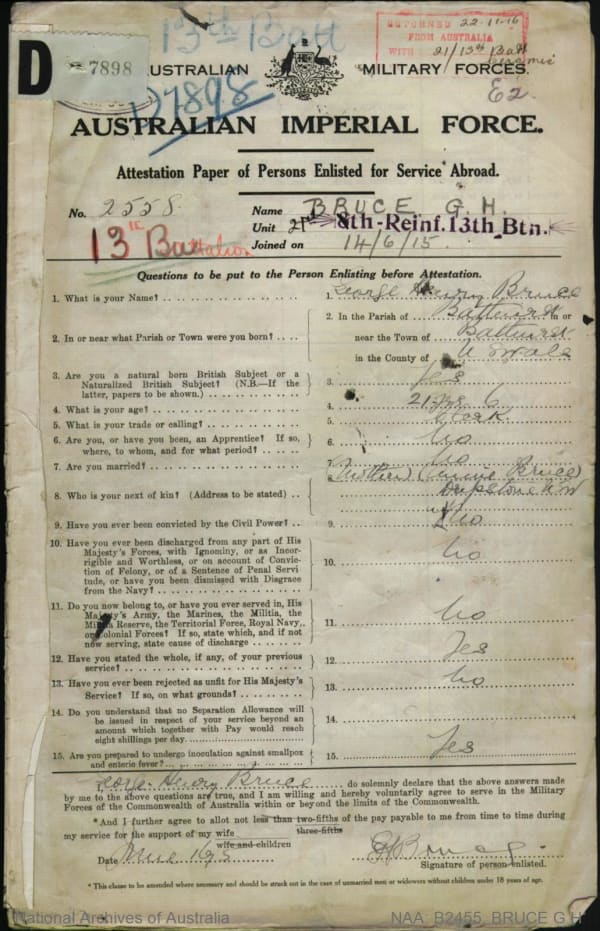 13th Batt
RETURNED 22-11-16
FROM AUSTRALIA
WITH 21/13th Batt
D
7898
AUSTRALIAN MILITARY FORCES.
17898
E2.
AUSTRALIAN IMPERIAL FORCE.
Attestation Paper of Persons Enlisted for Service Abroad.
No. 2558
Name BRUCE G. H.
Unit 8th-Reinf. 13th Btn.
13TH Battalion
Joined on 14/6/15
Questions to be put to the Person Enlisting before Attestation.
1. What is your Name?
1. George Henry Bruce
2. In or near what Parish or Town were you born?
2. In the Parish of Bathurst in or
near the Town of Bathurst
in the County of
3. Are you a natural born British Subject or a
Naturalized British Subject? (N.B.—If the
latter, papers to be shown.)
3. Yes
4. What is your age?
4. 21 6
5. What is your trade or calling?
5. Clerk
6. Are you, or have you been, an Apprentice? If so,
where, to whom, and for what period?
6. No
7. Are you married?
7. No
8. Who is your next of kin? (Address to be stated)
8. Mother (Annie Bruce)
9. Have you ever been convicted by the Civil Power?
9. No
10. Have you ever been discharged from any part of His
Majesty's Forces, with Ignominy, or as Incor-
rigible and Worthless, or on account of Convic-
tion of Felony, or of a Sentence of Penal Servi
tude, or have you been Dismissed with Disgrace
from the Navy?
10. No
11. Do you now belong to, or have you ever served in, His
Majesty's Army, the Marines, the Militia, the
Militia Reserve, the Territorial Force, Royal Navy,
or Colonial Forces? If so, state which, and if not
now serving, state cause of discharge
11. No
12. Have you stated the whole, if any, of your previous
service?
12. Yes
13. Have you ever been rejected as unfit for His Majesty's
Service? If so, on what grounds?
13. No
14. Do you understand that no Separation Allowance will
be issued in respect of your service beyond an
amount which together with Pay would reach
eight shillings per day.
14.
15. Are you prepared to undergo inoculation against smallpox
and enteric fever?
15. Yes
I, George Henry Bruce do solemnly declare that the above answers made
by me to the above questions are true, and I am willing and hereby voluntarily agree to serve in the Military
Forces of the Commonwealth of Australia within or beyond the limits of the Commonwealth.
*And I further agree to allot not less than two-fifths of the pay payable to me from time to time during
three-fifths
my service for the support of my wife
wife and children
Date June
GHBruce
Signature of person enlisted.
* This clause to be amended where necessary and should be struck out in the case of unmarried men or widowers without children under 18 years of age.
National Archives of Australia
NAA: B2455, BRUCE G H